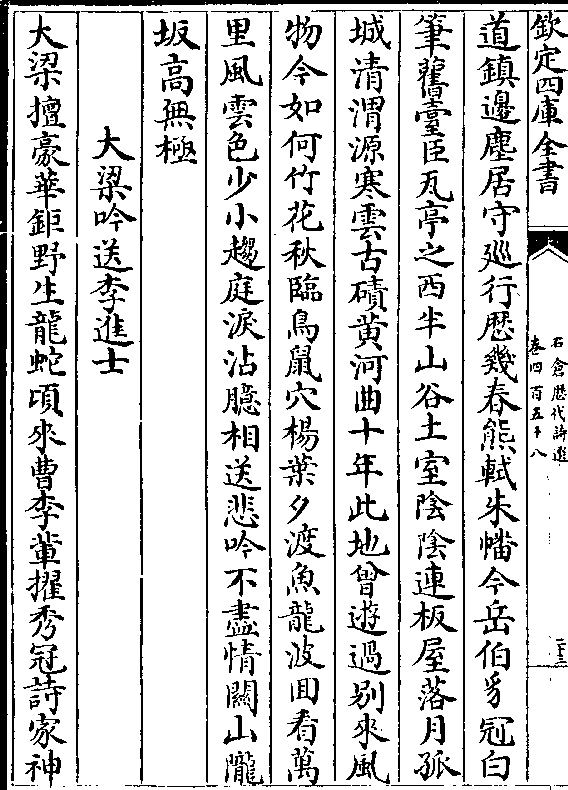 欽定四庫全書
石倉歷代詩選
卷四百五十八
二十三
道鎮邊塵居守廵行歴幾春熊軾朱幡今岳伯豸冠白
筆舊臺臣瓦亭之西半山谷土室陰陰連板屋落月孤
城清渭源寒雲古磧黄河曲十年此地曾遊過别來風
物今如何竹花秋臨鳥鼠穴楊葉夕渡魚龍波回看萬
里風雲色少小趨庭淚沾臆相送悲吟不盡情關山隴
坂高無極
大梁吟送李進士
大梁擅豪華鉅野生龍蛇頃來曹李輩擢秀冠詩家神